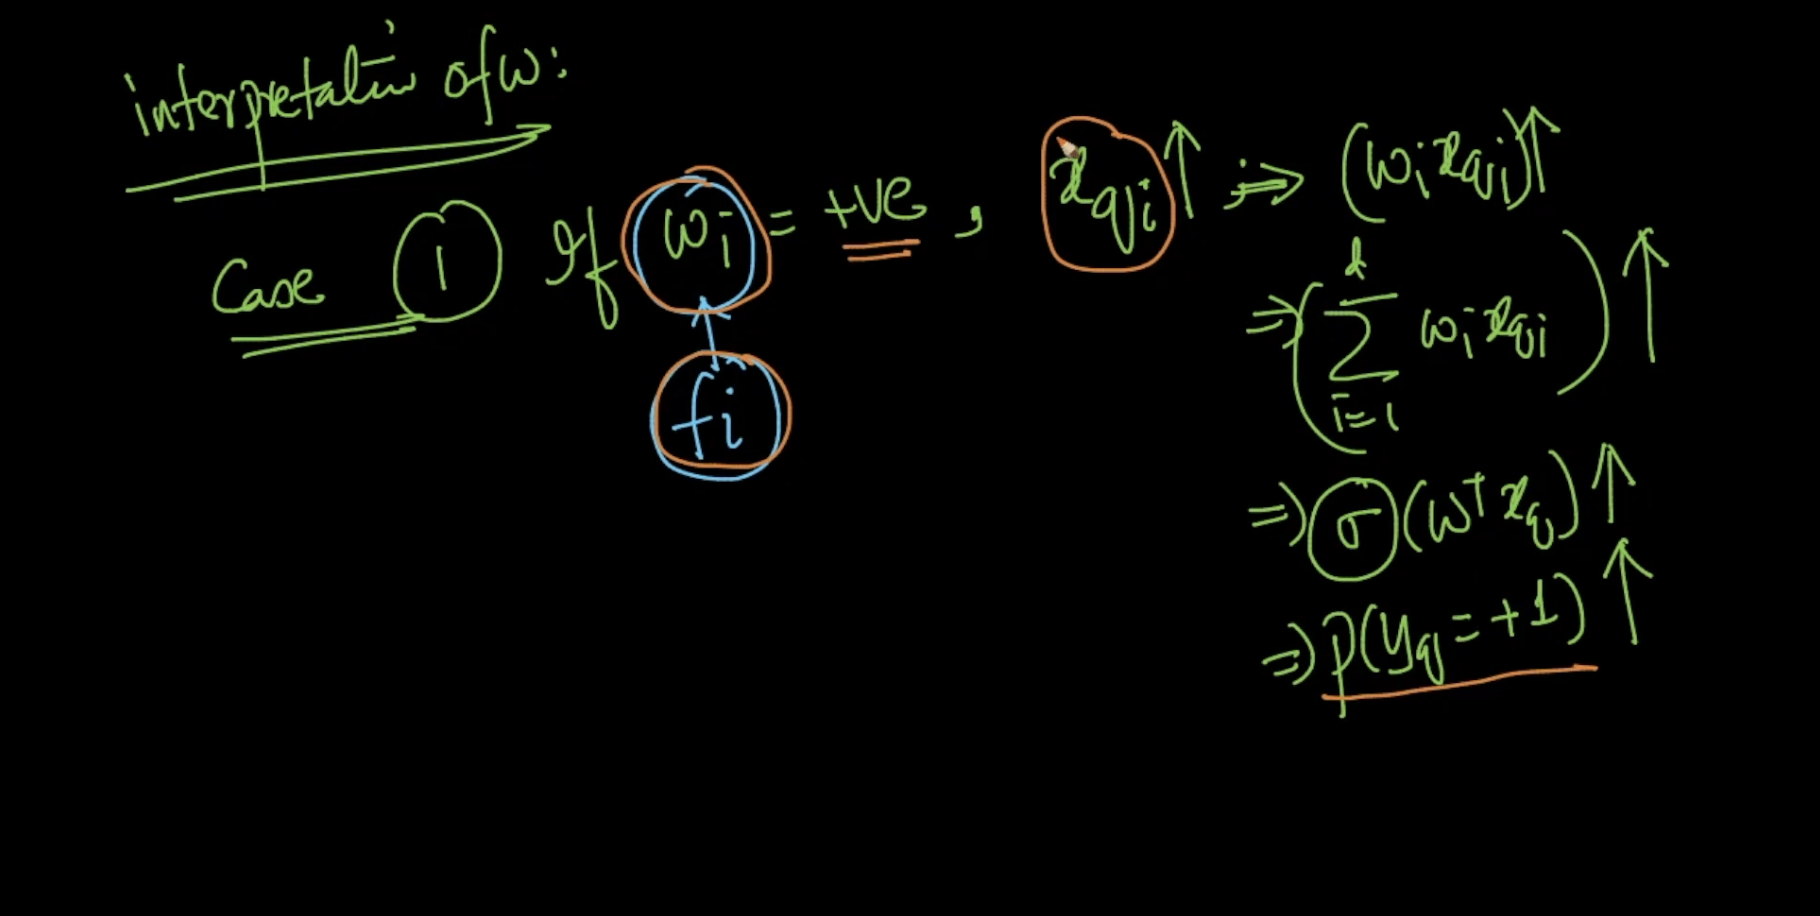 interpretation of w:
Case 1 If wᵢ = +ve, x_qi ↑ ; ⇒ (wᵢ x_qi) ↑
fi
⇒ (∑_{i=1}^{d} wᵢ x_qi) ↑
⇒ σ(wᵀ x_q) ↑
⇒ P(y_q = +1) ↑